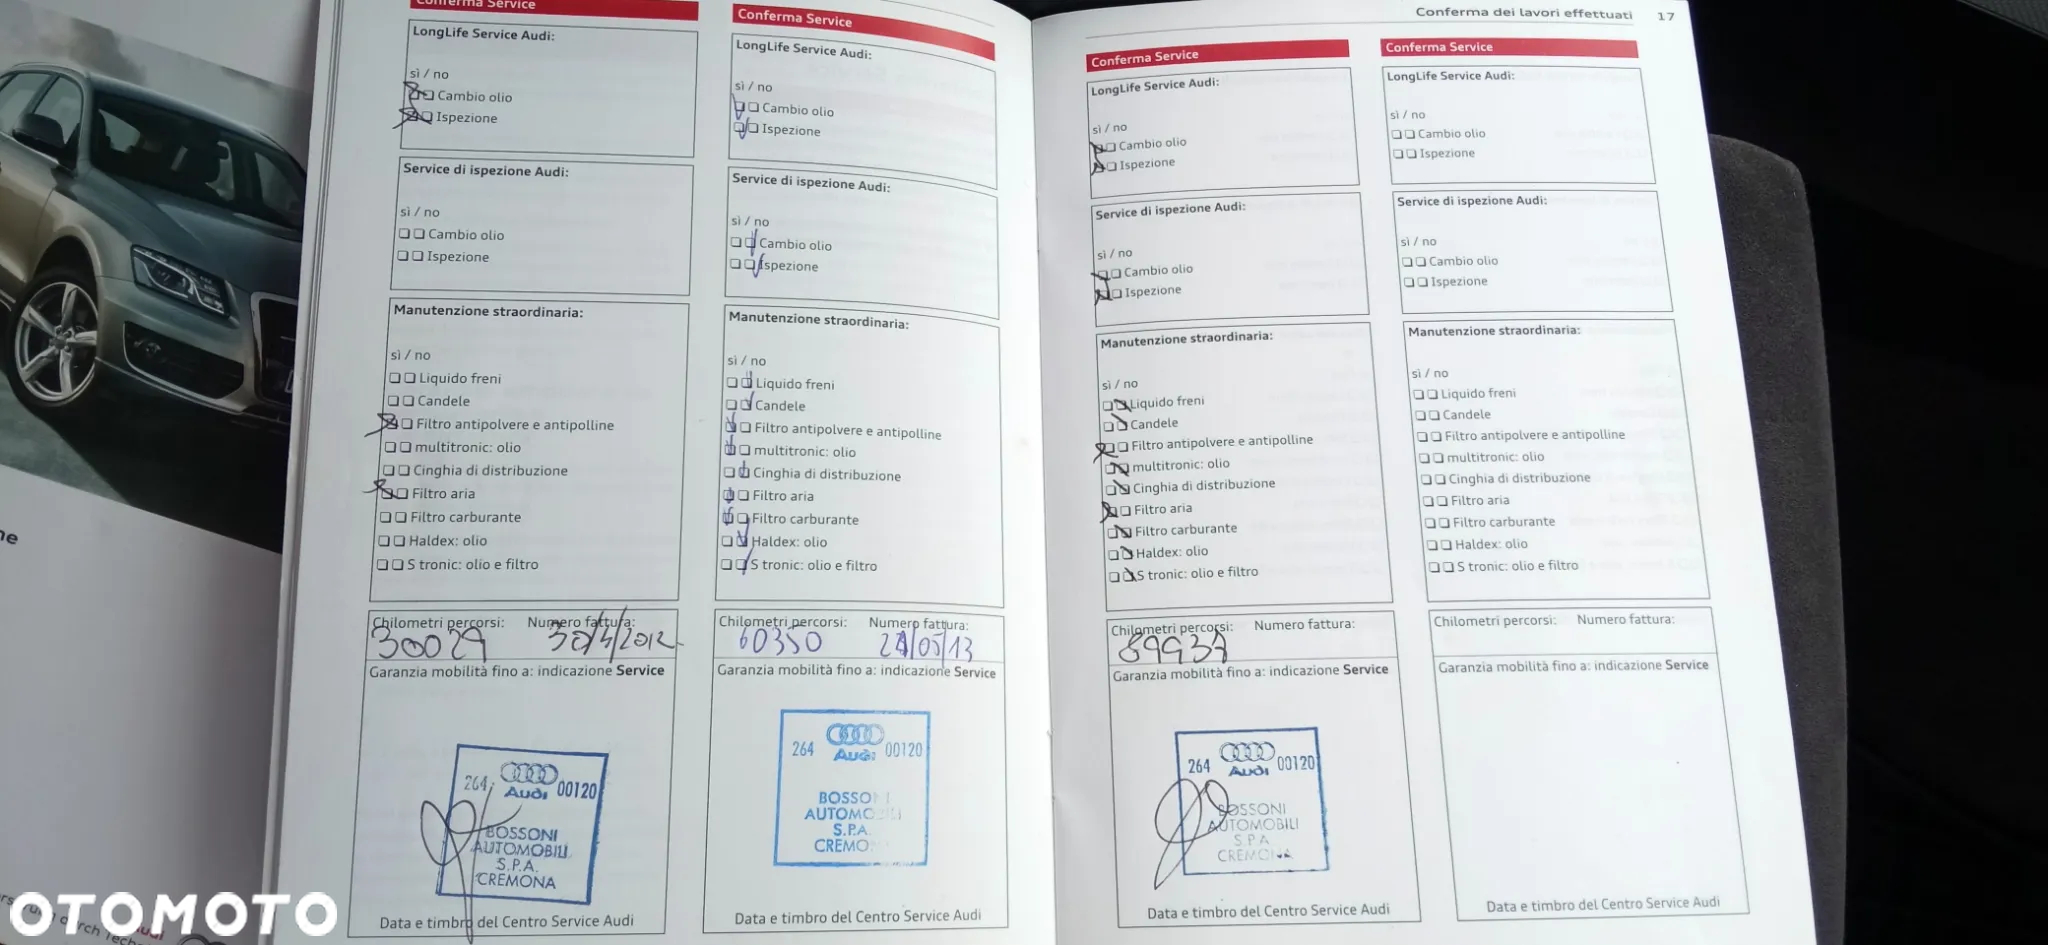 Conferma Service
LongLife Service Audi:
sì / no
Cambio olio
Ispezione
Service di ispezione Audi:
sì / no
Cambio olio
Ispezione
Manutenzione straordinaria:
sì / no
Liquido freni
Candele
Filtro antipolvere e antipolline
multitronic: olio
Cinghia di distribuzione
Filtro aria
Filtro carburante
Haldex: olio
S tronic: olio e filtro
Chilometri percorsi: Numero fattura:
30029 30/4/2012
Garanzia mobilità fino a: indicazione Service
264 Audi 00120
BOSSONI
AUTOMOBILI
S.P.A.
CREMONA
Data e timbro del Centro Service Audi
Conferma Service
LongLife Service Audi:
sì / no
Cambio olio
Ispezione
Service di ispezione Audi:
sì / no
Cambio olio
Ispezione
Manutenzione straordinaria:
sì / no
Liquido freni
Candele
Filtro antipolvere e antipolline
multitronic: olio
Cinghia di distribuzione
Filtro aria
Filtro carburante
Haldex: olio
S tronic: olio e filtro
Chilometri percorsi: Numero fattura:
60350
Garanzia mobilità fino a: indicazione Service
264 Audi 00120
BOSSONI
AUTOMOBILI
S.P.A.
CREMONA
Data e timbro del Centro Service Audi
Conferma dei lavori effettuati 17
Conferma Service
LongLife Service Audi:
sì / no
Cambio olio
Ispezione
Service di ispezione Audi:
sì / no
Cambio olio
Ispezione
Manutenzione straordinaria:
sì / no
Liquido freni
Candele
Filtro antipolvere e antipolline
multitronic: olio
Cinghia di distribuzione
Filtro aria
Filtro carburante
Haldex: olio
S tronic: olio e filtro
Chilometri percorsi: Numero fattura:
89937
Garanzia mobilità fino a: indicazione Service
264 Audi 00120
BOSSONI
AUTOMOBILI
S.P.A.
CREMONA
Data e timbro del Centro Service Audi
Conferma Service
LongLife Service Audi:
sì / no
Cambio olio
Ispezione
Service di ispezione Audi:
sì / no
Cambio olio
Ispezione
Manutenzione straordinaria:
sì / no
Liquido freni
Candele
Filtro antipolvere e antipolline
multitronic: olio
Cinghia di distribuzione
Filtro aria
Filtro carburante
Haldex: olio
S tronic: olio e filtro
Chilometri percorsi: Numero fattura:
Garanzia mobilità fino a: indicazione Service
Data e timbro del Centro Service Audi
OTOMOTO